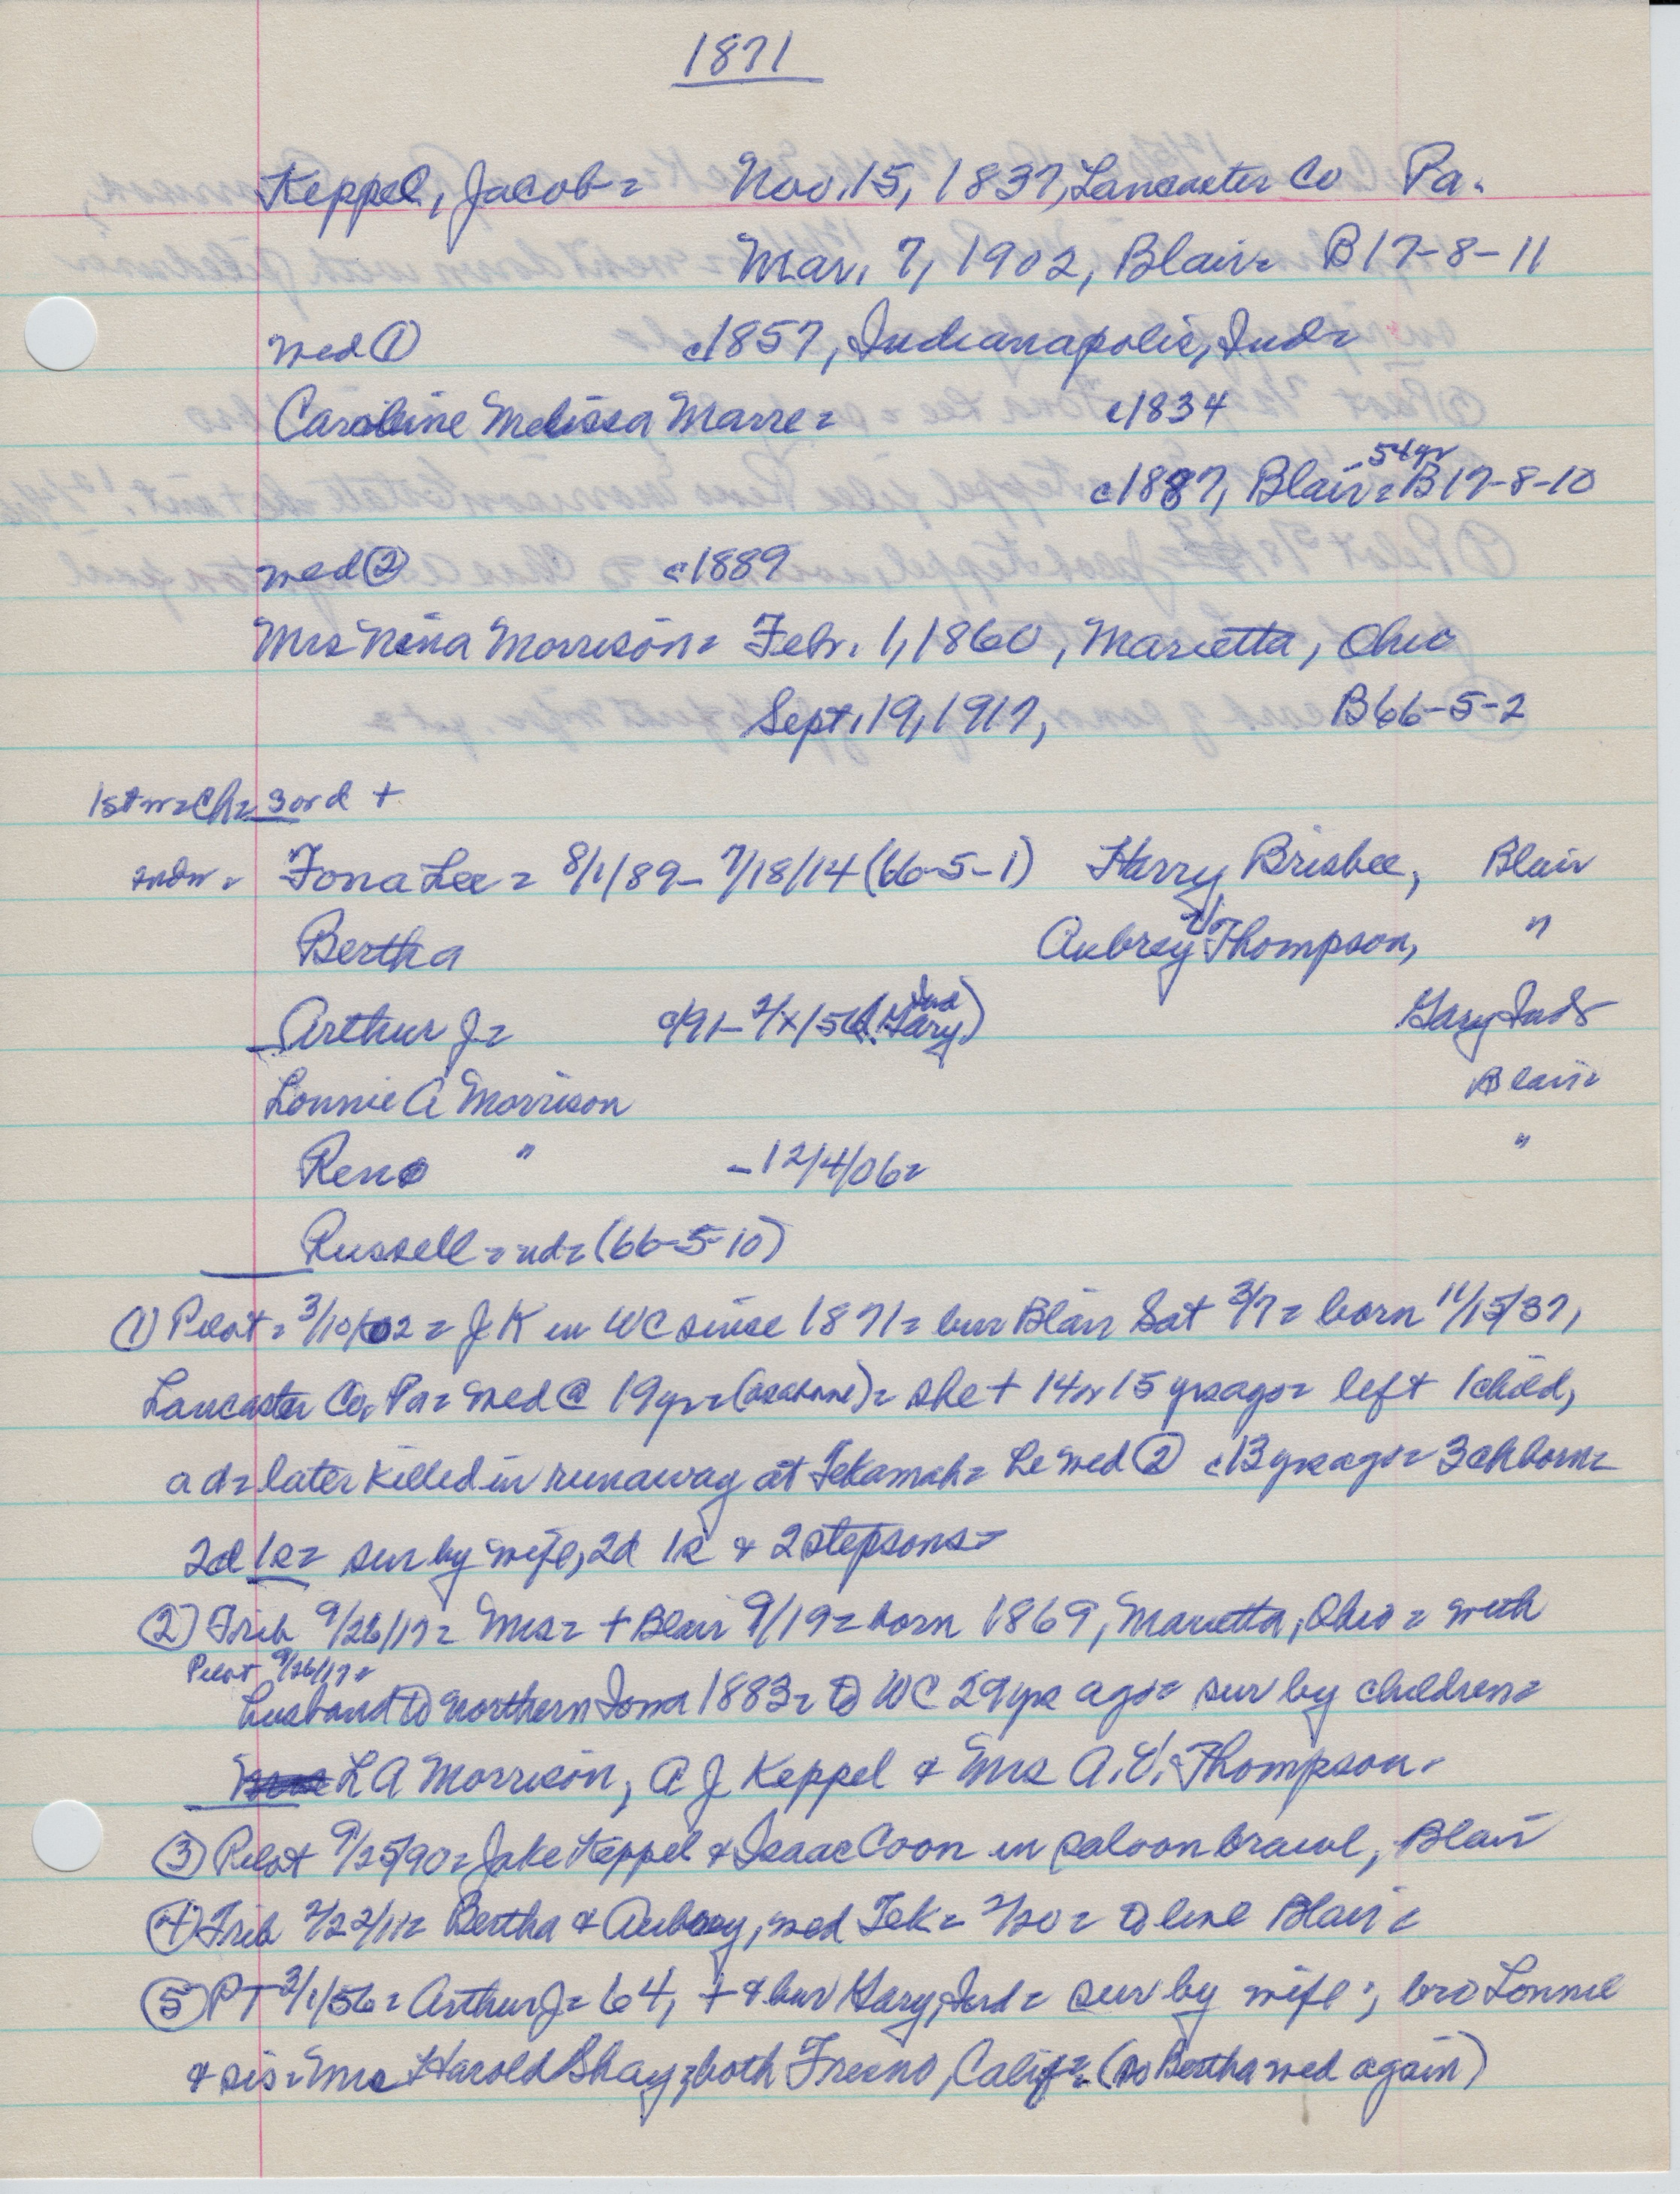 1871
Keppel, Jacob = Nov. 15, 1837, Lancaster Co Pa.
Mar. 7, 1902, Blair = B17-8-11
wed ① c1857, Indianapolis, Ind =
Caroline Melissa Marre = c1834
54yr
c1887, Blair = B17-8-10
wed ② c1889
Mrs Nina Morrison = Febr. 1, 1860, Marietta, Ohio
Sept. 19, 1917, B66-5-2
1st w = Ch = 3 or d +
2nd w = Fona Lee = 8/1/89 - 7/18/14 (66-5-1) Harry Brisbee, Blair
Bertha Aubrey V. Thompson, "
Arthur J = c/91 - 2/x/56 (Gary, Ind) Gary Ind =
Lonnie A Morrison Blair =
Reno " - 12/4/06 = "
Russell = nd = (66-5-10)
① Pilot = 3/10/02 = J K in WC since 1871 = bur Blair Sat 3/7 = born 11/15/37,
Lancaster Co, Pa = wed @ 19yr = (as above) = she + 14 or 15 yrs ago = left 1 child,
a d = later killed in runaway at Tekamah = he wed ② c13 yrs ago = 3 ch born =
2d 1s = sur by wife, 2d 1s & 2 stepsons =
② Trib 9/26/17 = Mrs = + Blair 9/19 = born 1869, Marietta, Ohio = with
Pilot 9/26/17 =
husband to northern Iowa 1883 = to WC 29 yrs ago = sur by children =
L A Morrison, A J Keppel & Mrs A. V. Thompson =
③ Pilot 9/25/90 = Jake Keppel & Isaac Coon in saloon brawl, Blair
④ Trib 2/22/11 = Bertha & Aubrey, wed Tek = 2/20 = to live Blair =
⑤ PT 3/1/56 = Arthur J = 64, + & bur Gary, Ind = sur by wife; bro Lonnie
& sis = Mrs Harold Shay; both Fresno, Calif = (so Bertha wed again)